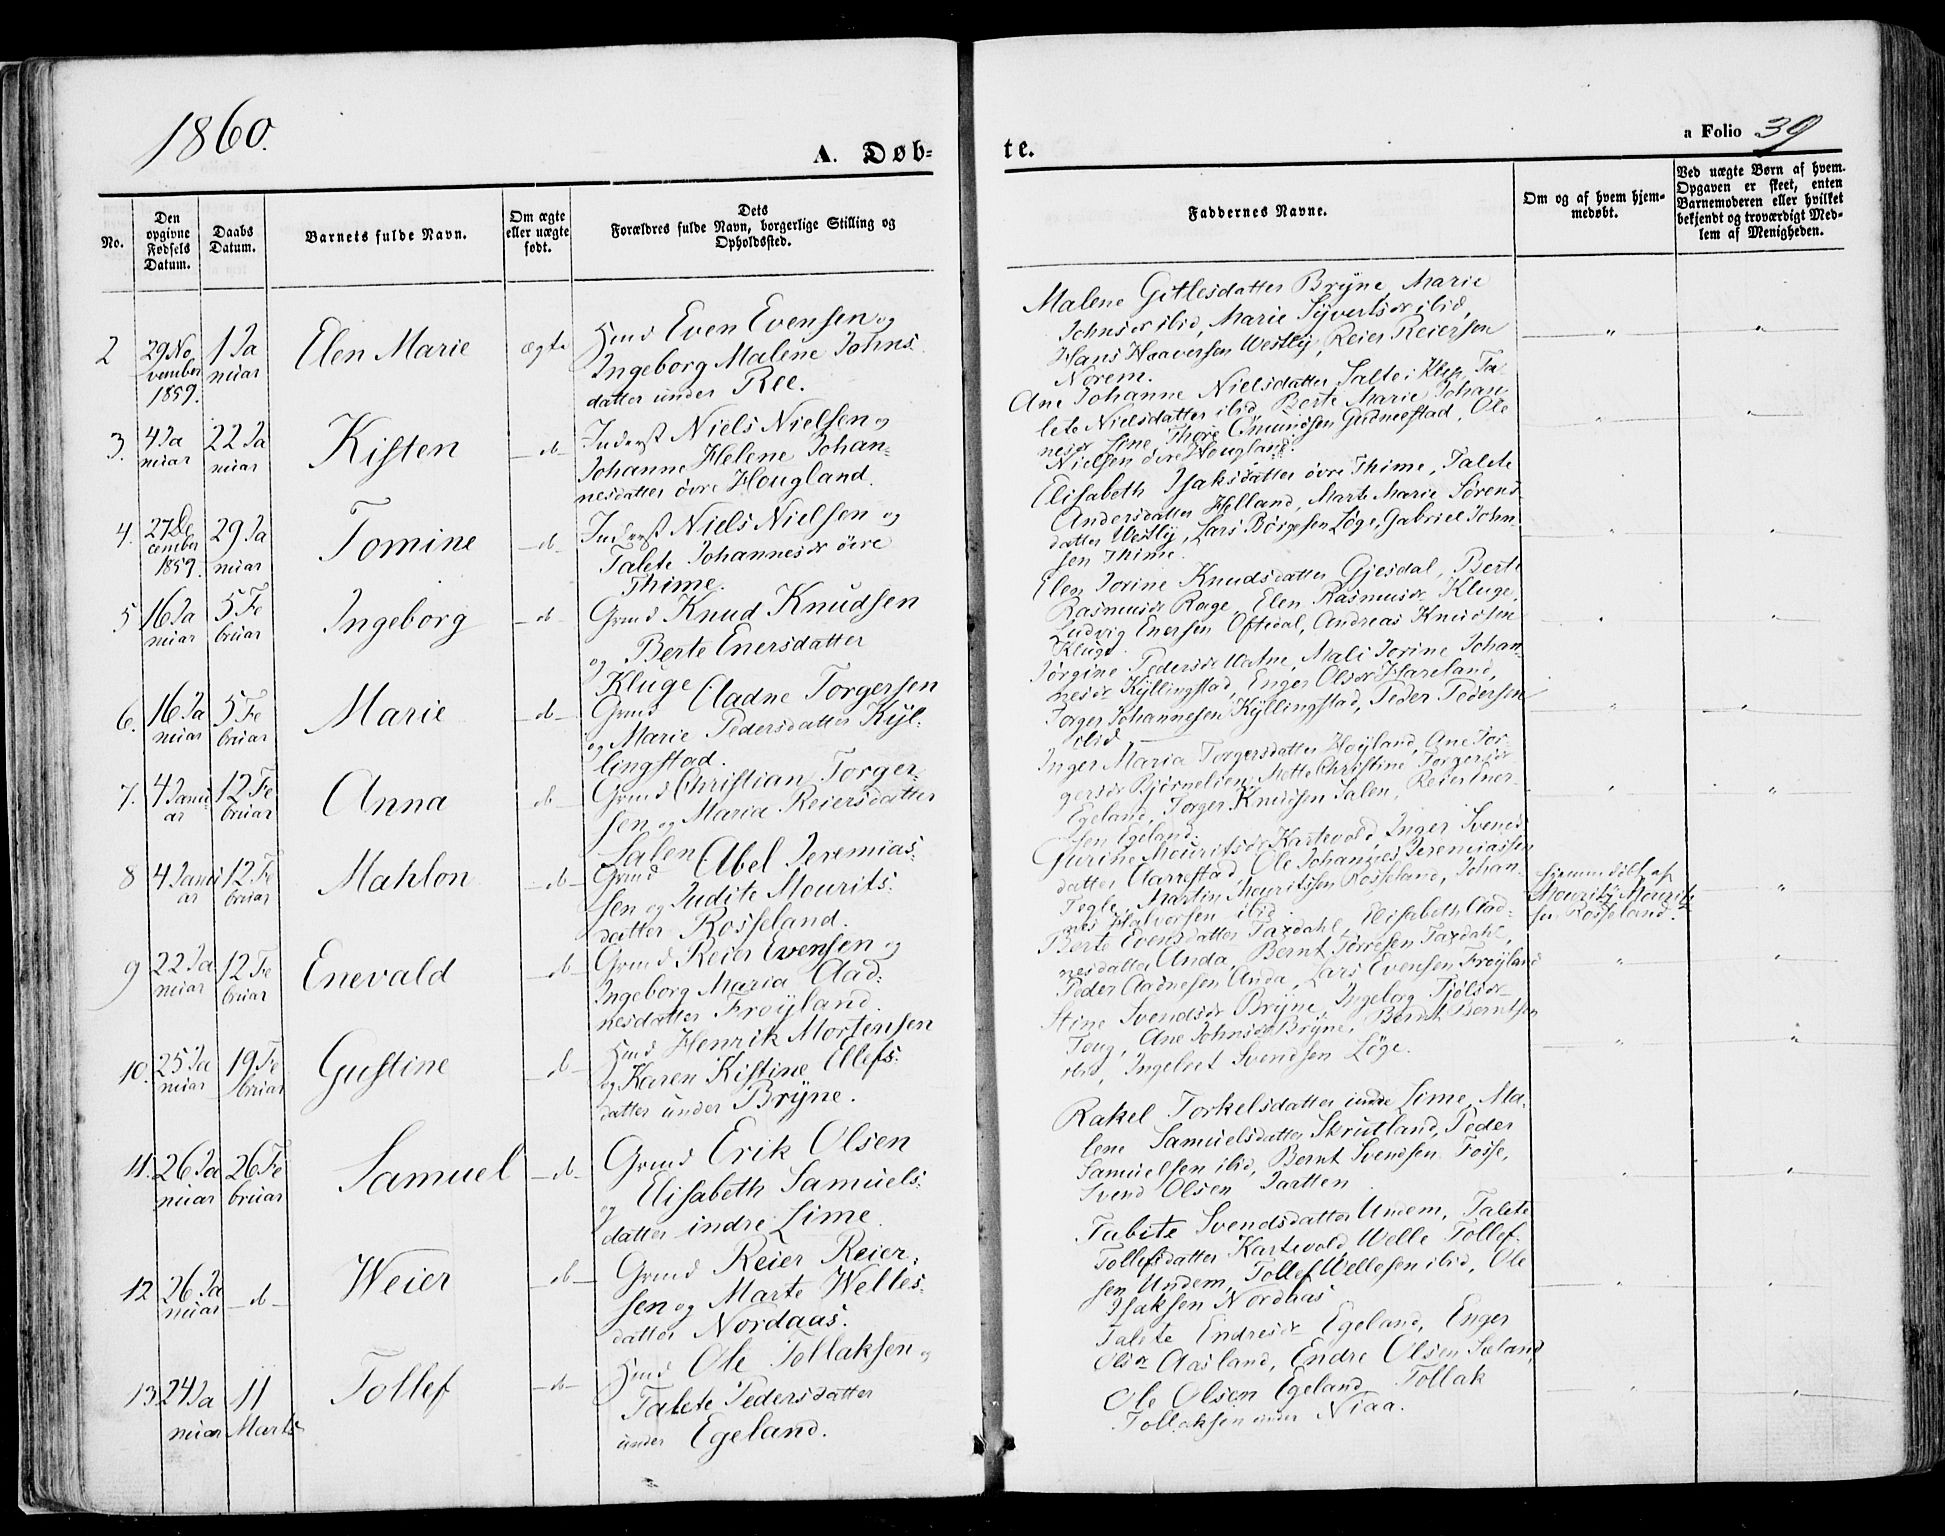 1860.
A. Døb-
te.
a Folio 39
No.
Den
opgivne
Fødsels
Datum.
Daabs
Datum.
Barnets fulde Navn.
Om ægte
eller uægte
født.
Dets
Forældres fulde Navn, borgerlige Stilling og
Opholdssted.
Faddernes Navne.
Om og af hvem hjem-
medøbt.
Ved uægte Børn af hvem
Opgaven er skeet, enten
Barnemoderen eller hvilket
bekjendt og troværdigt Med-
lem af Menigheden.
2
29 No
vember
1859.
1 Ja
nuar
Elen Marie
ægte
Huusmd Even Evensen og
Ingeborg Malene Johns
datter under Ree.
Malene Gitlesdatter Bryne, Marie
Johnsdr ibid, Marie Syvertsdr ibid,
Hans Haaversen Westly, Reier Reiersen
Norem.
3.
4 Ja
nuar
22 Ja
nuar
Kisten
-do-
Inderst Niels Nielsen og
Johanne Helene Johan-
nesdatter övre Hougland.
Ane Johanne Nielsdatter Salte i Klep, Ta-
lete Nielsdatter ibid, Berte Marie Johan-
nesdr Line, Thore Omundsen Gudmestad, Ole
Nielsen övre Hougland.
4.
27 De
cember
1859.
29 Ja
nuar
Tomine
-do-
Inderst Niels Nielsen og
Talete Johannesdr övre
Thime.
Elisabeth Isaksdatter övre Thime, Talete
Andersdatter Helland, Marte Marie Sörens
datter Westly, Lars Börgesen Löge, Gabriel John
sen Thime.
5
16 Ja
nuar
5 Fe
bruar
Ingeborg
-do-
Grmd Knud Knudsen
og Berte Enersdatter
Kluge.
Elen Jorine Knudsdatter Gjesdal, Berte
Rasmusdr Rage, Elen Rasmusdr Kluge,
Ludvig Enersen Oftedal, Andreas Knudsen
Kluge.
6.
16 Ja
nuar
5 Fe
bruar
Marie
-do-
Grmd Aadne Torgersen
og Marie Pedersdatter Kyl-
lingstad.
Jörgine Pedersdr Watne, Mali Jorine Johan-
nesdr Kyllingstad, Enger Olsdr Hareland,
Torger Johannesen Kyllingstad, Peder Pedersen
ibid
7.
4 Janu
ar
12 Fe
bruar
Anna
do-
Grmd Christian Torger-
sen og Maria Reiersdatter
Salen.
Inger Maria Torgersdatter Høyland, Ane Tor-
gersdr Björnelien, Mette Christine Torgersdr
Egeland, Torger Knudsen Salen, Reier Iner-
sen Egeland.
8
4 Janu
ar
12 Fe
bruar
Mahlon
-do-
Grmd Abel Jeremias-
sen og Judite Mourits-
datter Rosseland.
Gurine Mouritsdr Kartevold, Inger Svends
datter Aarrestad, Ole Johannes Jeremiassen
Tegle, Martin Mouritssen Rosseland, Johan-
nes Halvorsen ibid.
Hjemmedöbt af
Mourits Mourit-
sen Rosseland.
9
22 Ja
nuar
12 Fe
bruar
Enevald
-do-
Grmd Reier Evensen og
Ingeborg Maria Aad-
nesdatter Frøyland.
Berte Evensdatter Taxdahl, Elisabeth Aad-
nesdatter Anda, Bernt Torresen Taxdahl,
Peder Aadnesen Anda, Lars Evensen Frøyland
10.
25 Ja
nuar
19 Fe
bruar
Gustine
-do-
Huusmd Henrik Mortensen
og Karen Kistine Ellefs-
datter under Bryne.
Stine Svendsdr Bryne, Ingeborg Tjölsdr
Toug, Ane Johnsdr Bryne, Bernt Berntsen
ibid, Ingebret Svendsen Löge.
11.
26 Ja
nuar
26 Fe
bruar
Samuel
-do-
Grmd Erik Olsen
og Elisabeth Samuels-
datter indre Lime.
Rakel Torkelsdatter indre Lime, Ma-
lene Samuelsdatter Skrutland, Peder
Samuelsen ibid, Bernt Svendsen Fosse,
Svend Olsen Jartten
12
26 Ja
nuar
-do-
Weier
-do-
Grmd Reier Reier-
sen og Marte Welles-
datter Nordaas.
Tabite Svendsdatter Undem, Talete
Tollefsdatter Kartevold, Welle Tollef-
sen Undem, Tollef Wellesen ibid, Ole
Isaksen Nordaas
13
24 Ja
nuar
11
Marts
Tollef
-do-
Huusmd Ole Tollaksen og
Talete Pedersdatter
under Egeland.
Talete Endresdr Egeland, Enger
Olsdr Aasland, Endre Olsen Sæland,
Ole Olsen Egeland, Tollak
Tollaksen under Niaa.